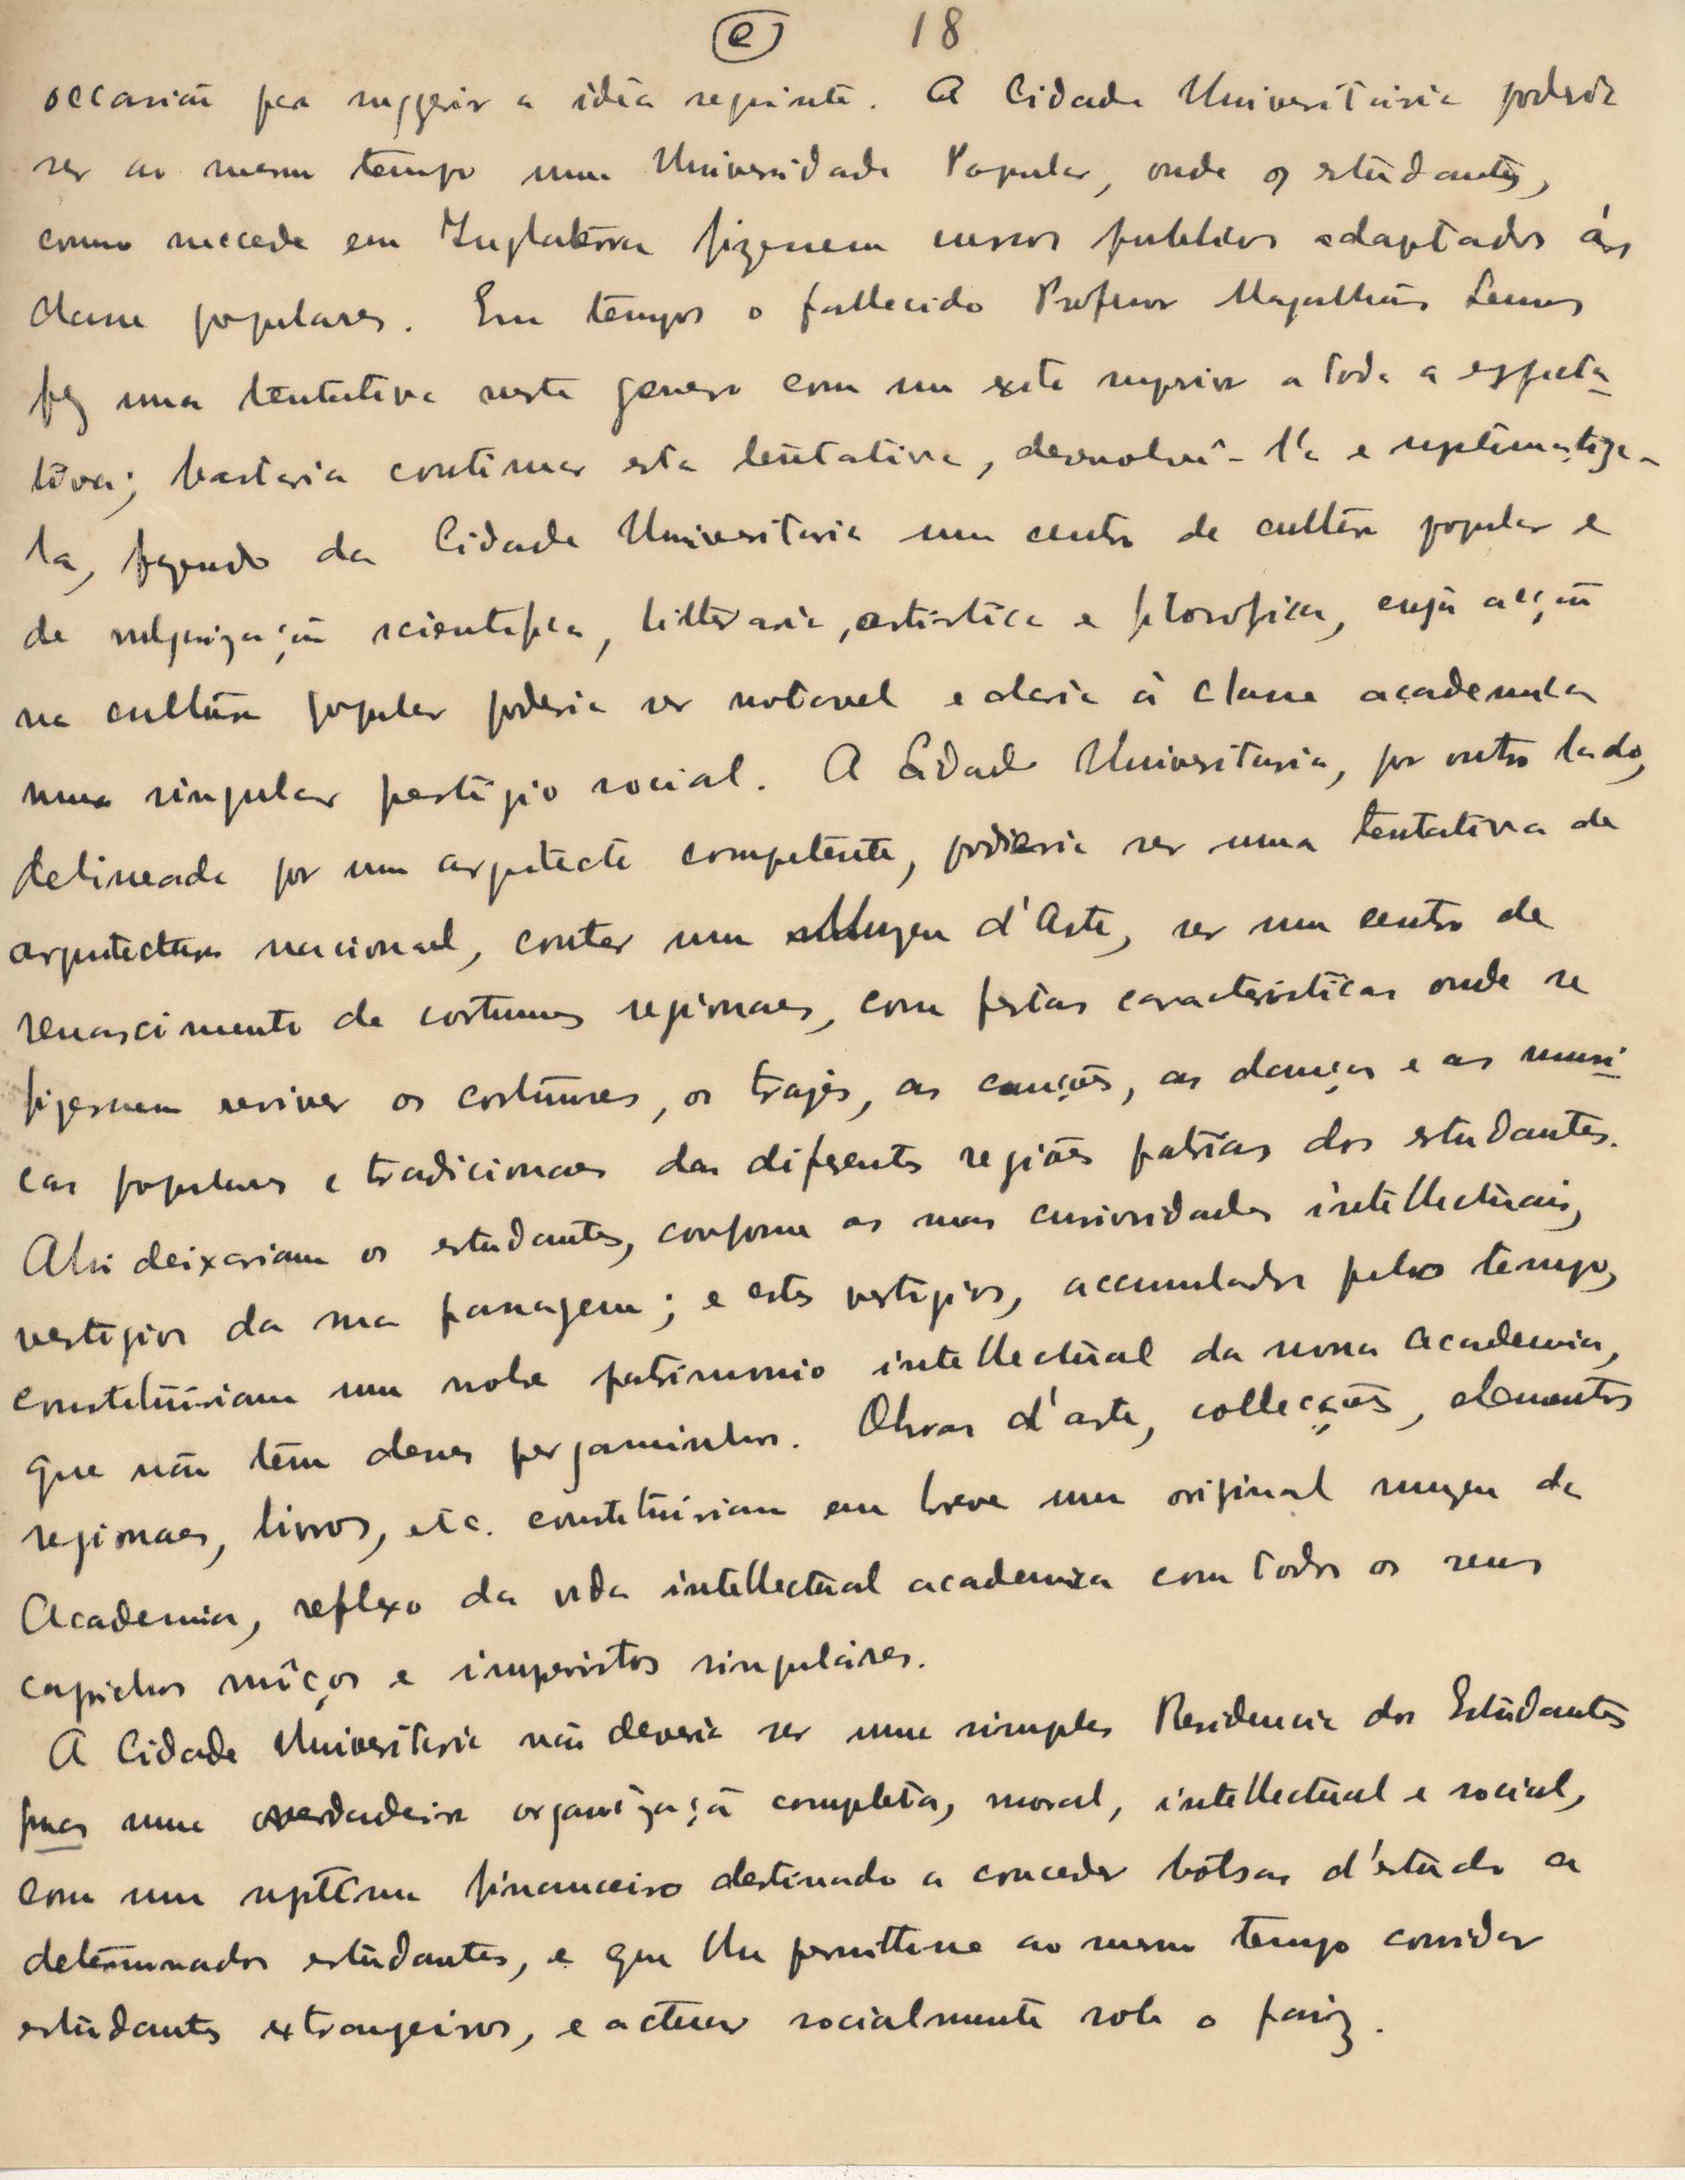 e 18
occasião para suggerir a idéa seguinte. A Cidade Universitaria poderia
ser ao mesmo tempo uma Universidade Popular, onde os estudantes,
como succede em Inglaterra fizessem cursos publicos adaptados ás
classes populares. Em tempos o fallecido Professor Magalhães Lemos
fez uma tentativa neste genero com um exito superior a toda a especta-
tiva; bastaria continuar esta tentativa, desenvolvê-l'a e systematiza-
la, fazendo da Cidade Universitaria um centro de cultura popular e
de vulgarização scientifica, litteraria, artistica e filosofica, cuja acção
na cultura popular poderia ser notavel e daria á classe academica
um singular prestigio social. A Cidade Universitaria, por outro lado,
delineada por um arquitecto competente, poderia ser uma tentativa de
arquitectura nacional, conter um Muzeu d'Arte, ser um centro de
renascimento de costumes regionaes, com festas caracteristicas onde se
fizessem reviver os costumes, os trajes, as canções, as danças e as musi-
cas populares e tradicionaes das diferentes regiões patrias dos estudantes.
Ahi deixariam os estudantes, conforme as suas curiosidades intellectuais,
vestigios da sua passagem; e estes vestigios, accumulados pelo tempo,
constituiriam um nobre patrimonio intellectual da nossa Academia,
que não têm desses pergaminhos. Obras d'arte, collecções, elementos
regionaes, livros, etc. constituiriam em breve um original muzeu da
Academia, reflexo da vida intellectual academica com todos os seus
caprichos môços e imprevistos singulares.
A Cidade Universitaria não deveria ser uma simples Residencia dos Estudantes
mas uma verdadeira organização completa, moral, intellectual e social,
com um systema financeiro destinado a conceder bolsas d'estudo a
determinados estudantes, e que lhe permittisse ao mesmo tempo convidar
estudantes extrangeiros, e actuar socialmente sobre o paiz.